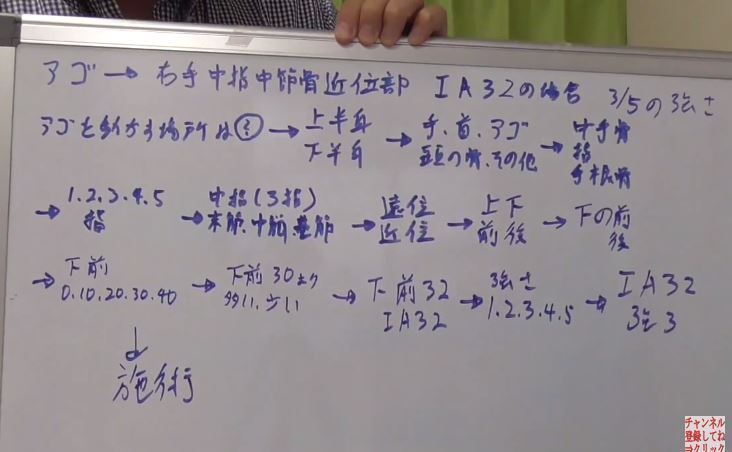 アゴ→右手中指中節骨近位部 IA32の場合 3/5の強さ
アゴを動かす場所は?→上半身
下半身
→手、首、アゴ
頭の骨、その他
→中手骨
指
手根骨
→1.2.3.4.5
指
→中指(3指)
末節、中節、基節
→遠位
近位
→上下
前後
→下の前
後
→下前
0.10.20.30.40
→下前30より
多い、少い
→下前32
IA32
→強さ
1.2.3.4.5
→IA32
強3
↓
施術
チャンネル
登録してね
⇒クリック